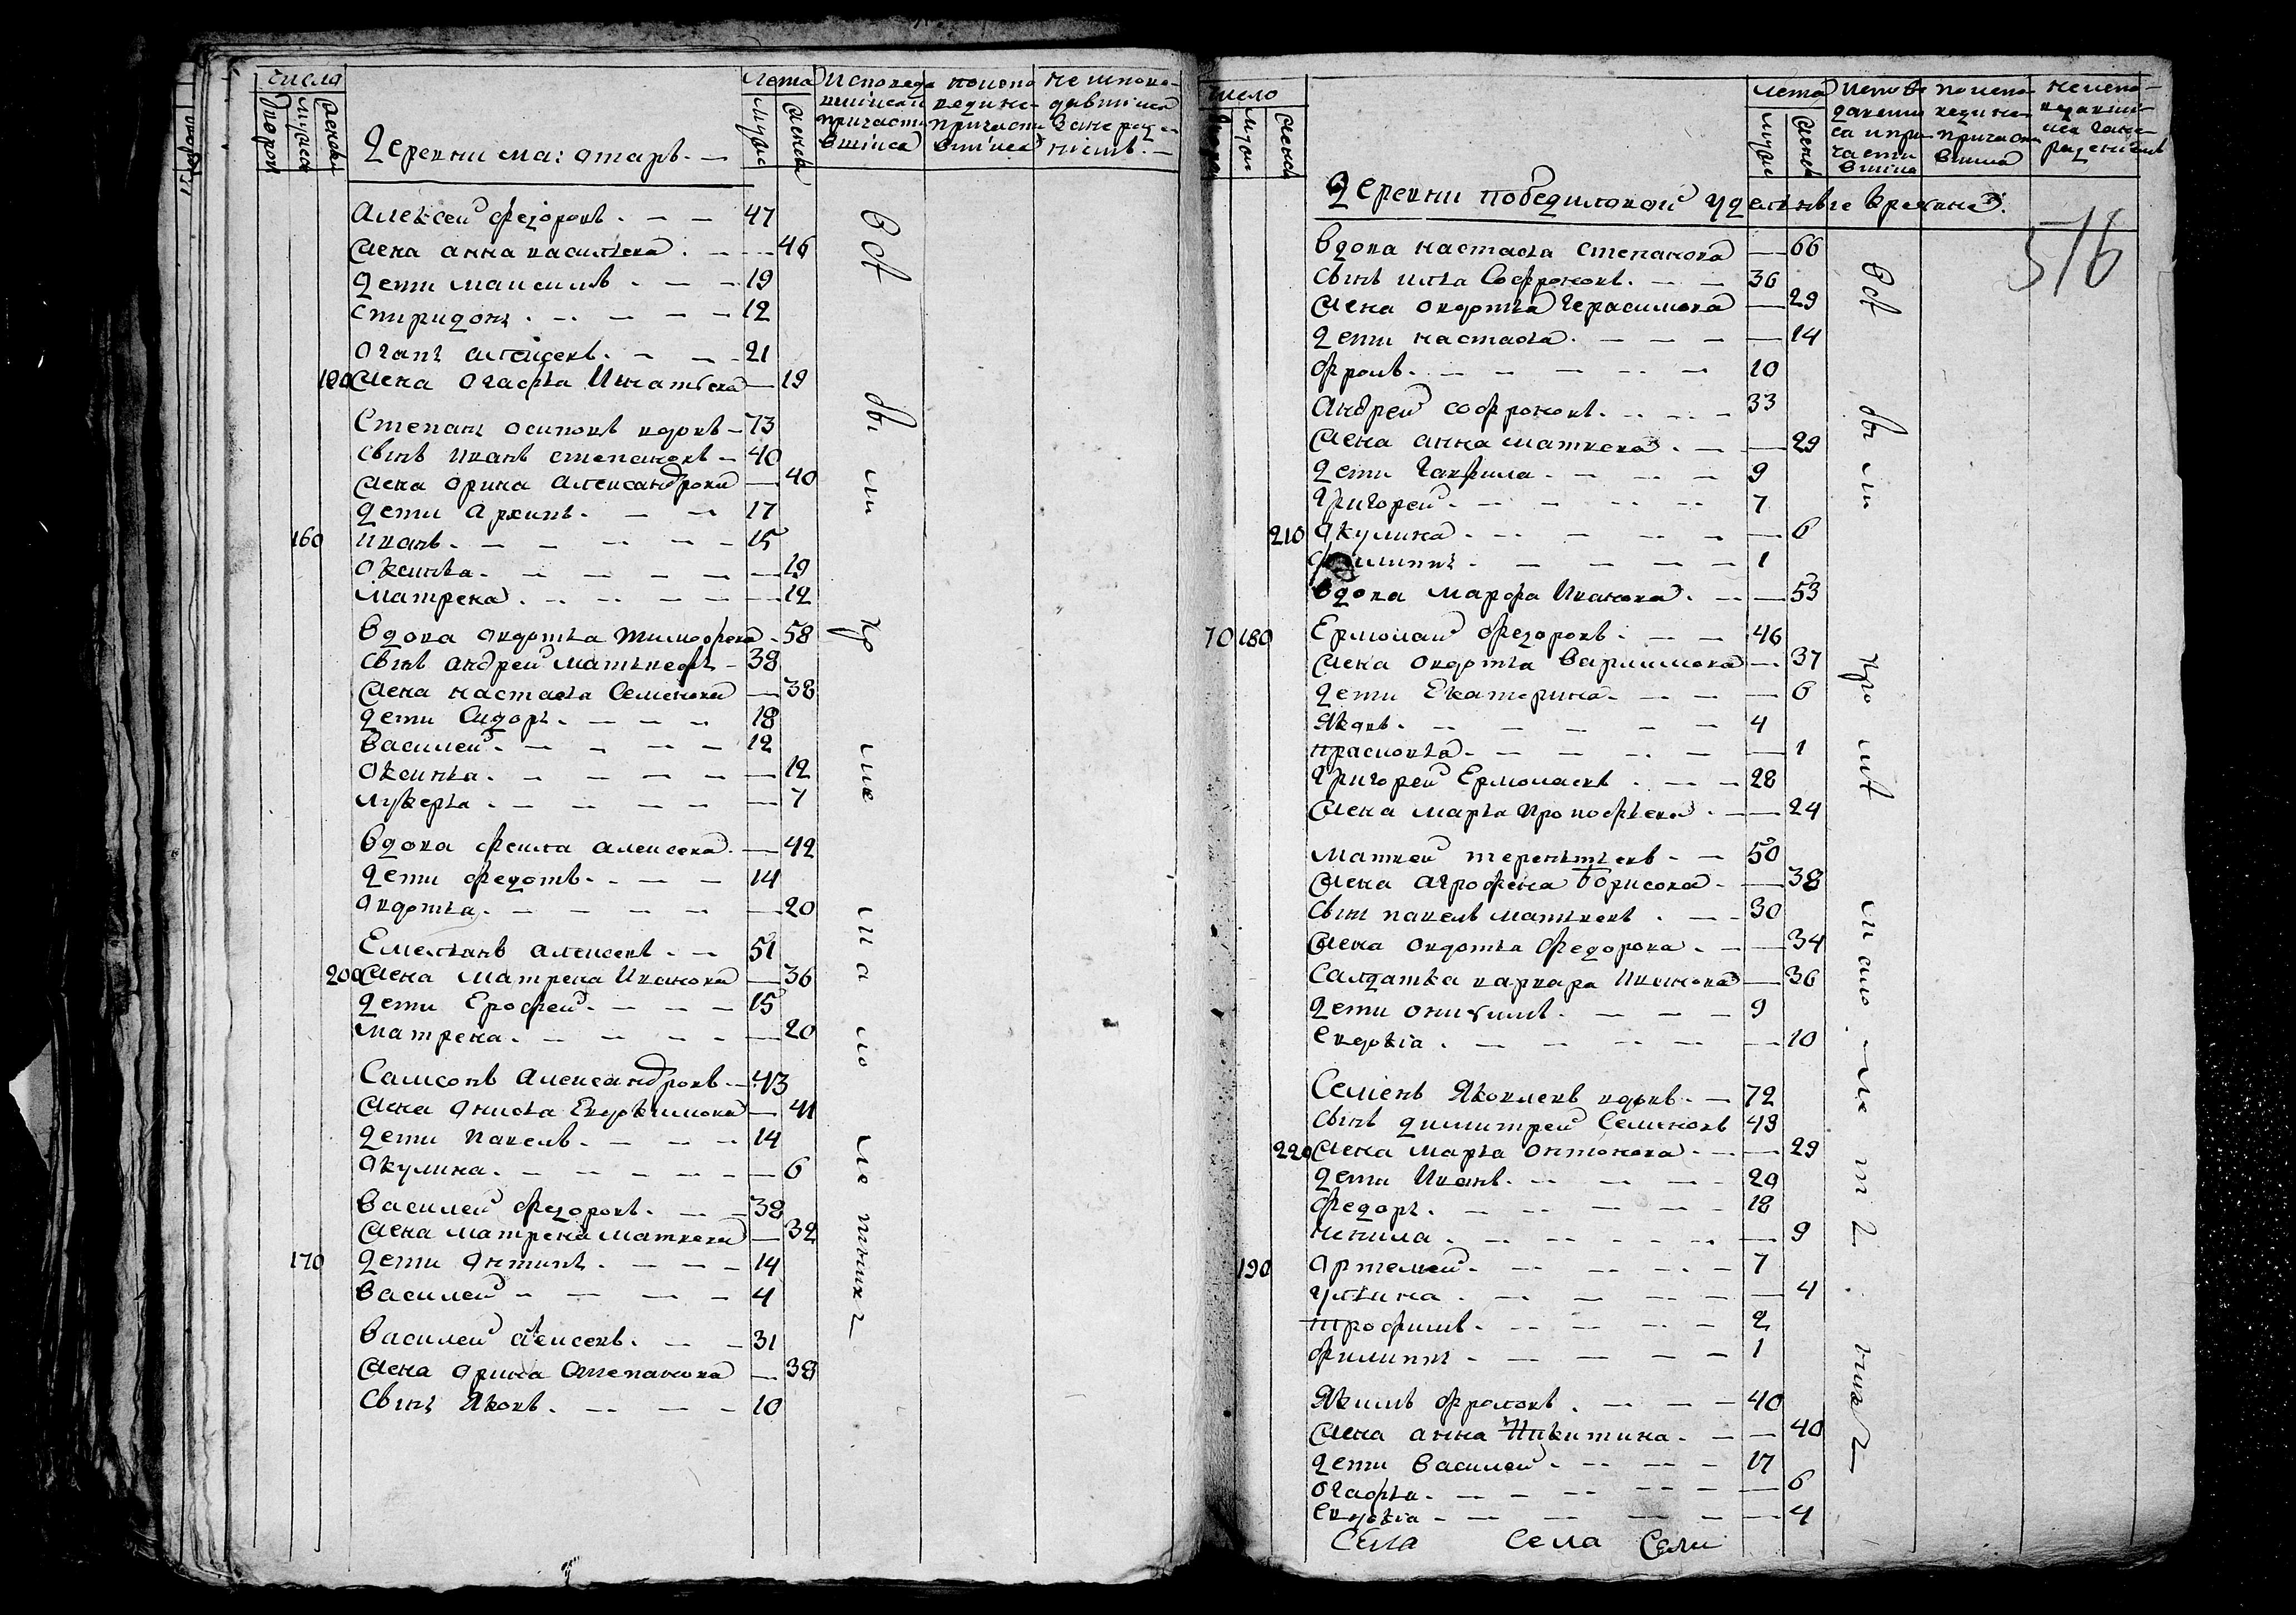 числа
дворов
мужеска
женска
Деревни
лета
мужес
женск
исповеда
вшиися и
причасти
вшиися
не испове
давшиися
Алексей Федоров 47
жена Анна Васильева 46
дети Максим 19
Спиридон 12
Агап Алексеев 21
190 жена Огафья Игнатьева 19
Степан Осипов вдов 73
сын Иван Степанов 40
жена Орина Александрова 40
дети Архип 17
160 Иван 15
Оксинья 19
Матрена 12
вдова Овдотья Тимофеева 58
сын Андрей Матвеев 38
жена Настасья Семенова 38
дети Сидор 18
Василей 12
Оксинья 12
Лукерья 7
вдова Фекла Алексеева 42
дети Федот 14
Овдотья 20
Емельян Алексеев 51
200 жена Матрена Иванова 36
дети Ерофей 15
Матрена 20
Самсон Александров 43
жена Анисья Евдокимова 41
дети Павел 14
Акулина 6
Василей Федоров 38
жена Матрена Матвеева 32
170 дети Антип 14
Василей 4
Василей Алексеев 31
жена Орина Степанова 38
сын Яков 10
все
число
мужес
женск
лета
мужес
женск
Деревни Победиловой удельные крестьяне
516
вдова Настасья Степанова 66
сын Илья Софронов 36
жена Овдотья Герасимова 29
дети Настасья 14
Фрол 10
Андрей Софронов 33
жена Анна Матвеева 29
дети Гаврила 9
Григорей 7
210 Акулина 6
Филипп 1
вдова Марфа Иванова 53
70 180 Ермолай Федоров 46
жена Овдотья Варламова 37
дети Екатерина 6
Яков 4
Прасковья 1
Григорей Ермолаев 28
жена Марья Прокофьева 24
Матвей Терентьев 50
жена Агрофена Борисова 38
сын Павел Матвеев 30
жена Овдотья Федорова 34
салдатка Варвара Иванова 36
дети Онисим 9
Евдокия 10
Семен Яковлев вдов 72
сын Димитрей Семенов 43
220 жена Марья Онтонова 29
дети Иван 20
Федор 18
Ненила 9
190 Артемей 7
Ульяна 4
Трофим 2
Филипп 1
Яким Фролов 40
жена Анна Никитина 40
дети Василей 17
Огафья 6
Евдокия 4
все
села села сели